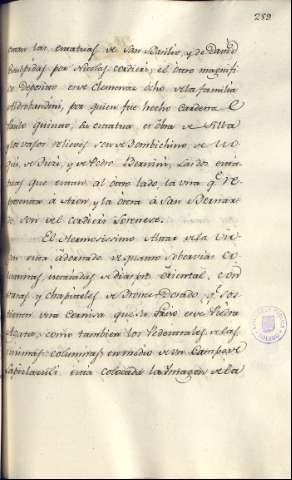 289
eran las estatuas de San Basilio, y de David
esculpidas por Nicolas cordieri; el otro magnifi
co Deposito es de Clemente ocho de la familia
Aldobrandini, por quien fue hecho Cardenal
Paulo quinto; la estatua es obra de Silla
y los vajos relieves son de Bonbichino, de
y de Pedro Bernini, las dos esta
tuas que estan al otro lado la una q.e re
presenta á Aron, y la otra á San Bernar
do, son del cordieri Lorenese.
El Hermosissimo Altar de la Vir
gen esta adornado de quatro sobervias co
lumnas istriadas de diaspro oriental, con
vasas y chapiteles de Bronce Dorado, q.e sos
tienen una Cornisa que su friso es de Piedra
Agata; como tambien los Pedestales de las
mismas columnas, en medio de un Campo de
Lapislazuli esta colocada la Ymagen de la